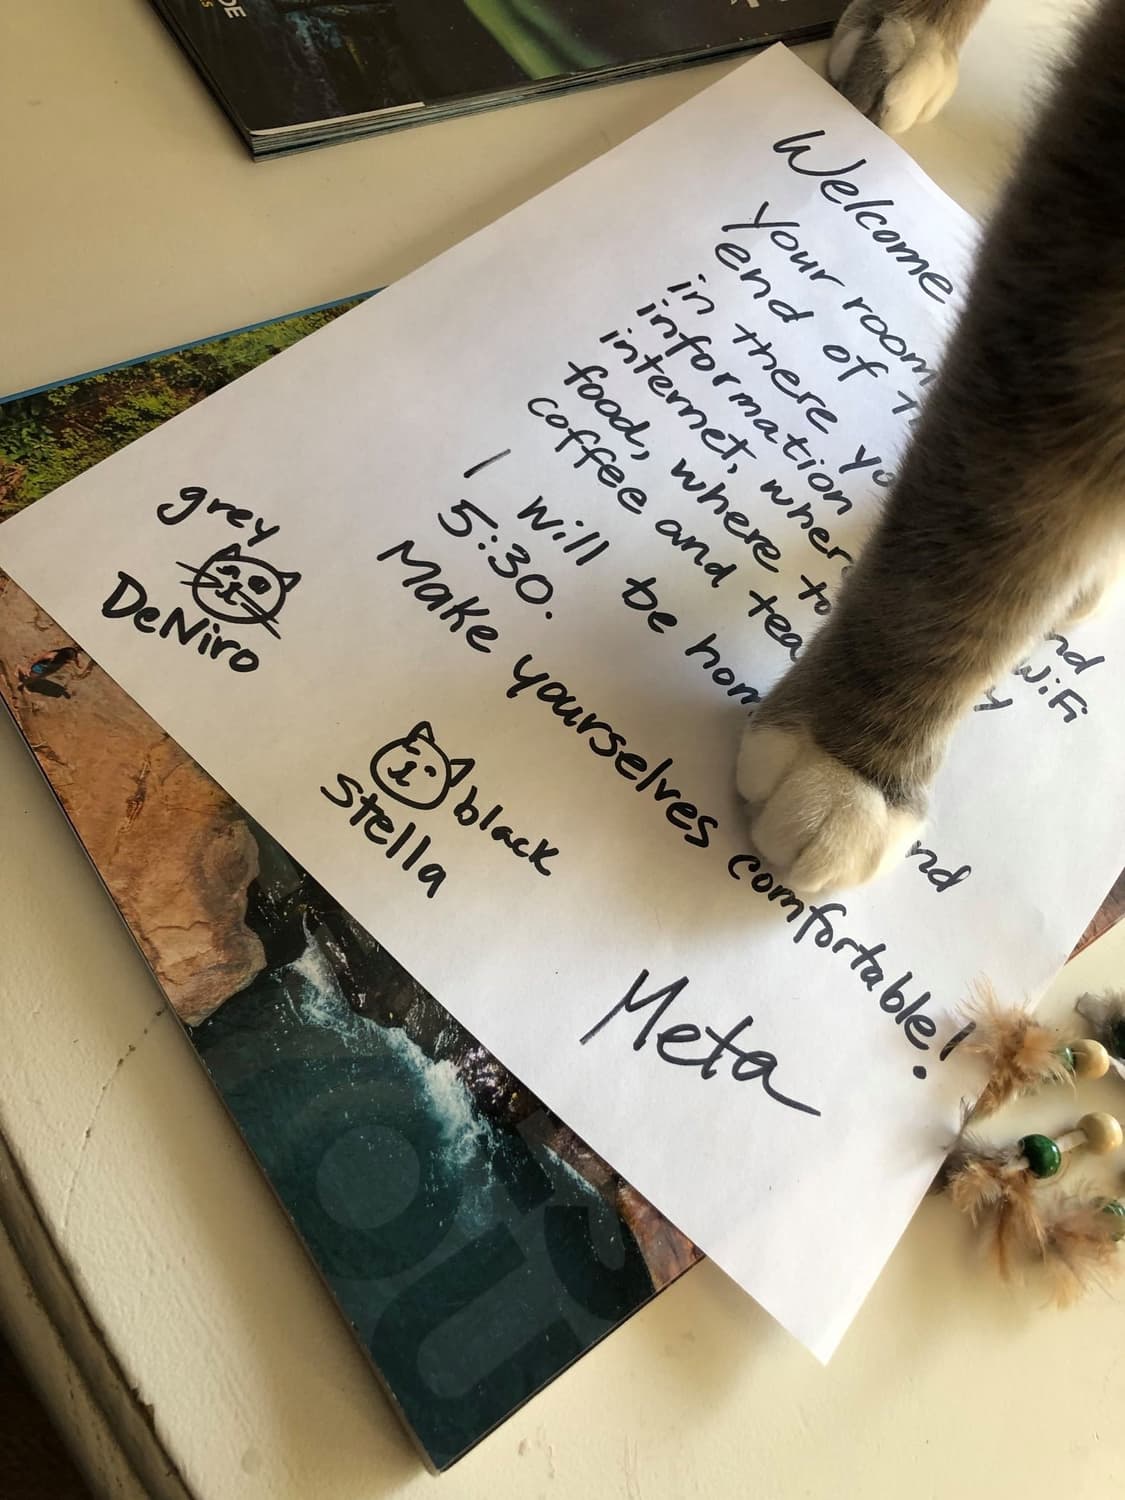 Welcome
Your room
end of
in there
information
internet, wher
food, where to nd
coffee and tea WiFi
y
I will be hom
5:30. nd
Make yourselves comfortable!
Meta
grey
DeNiro
black
Stella
DE